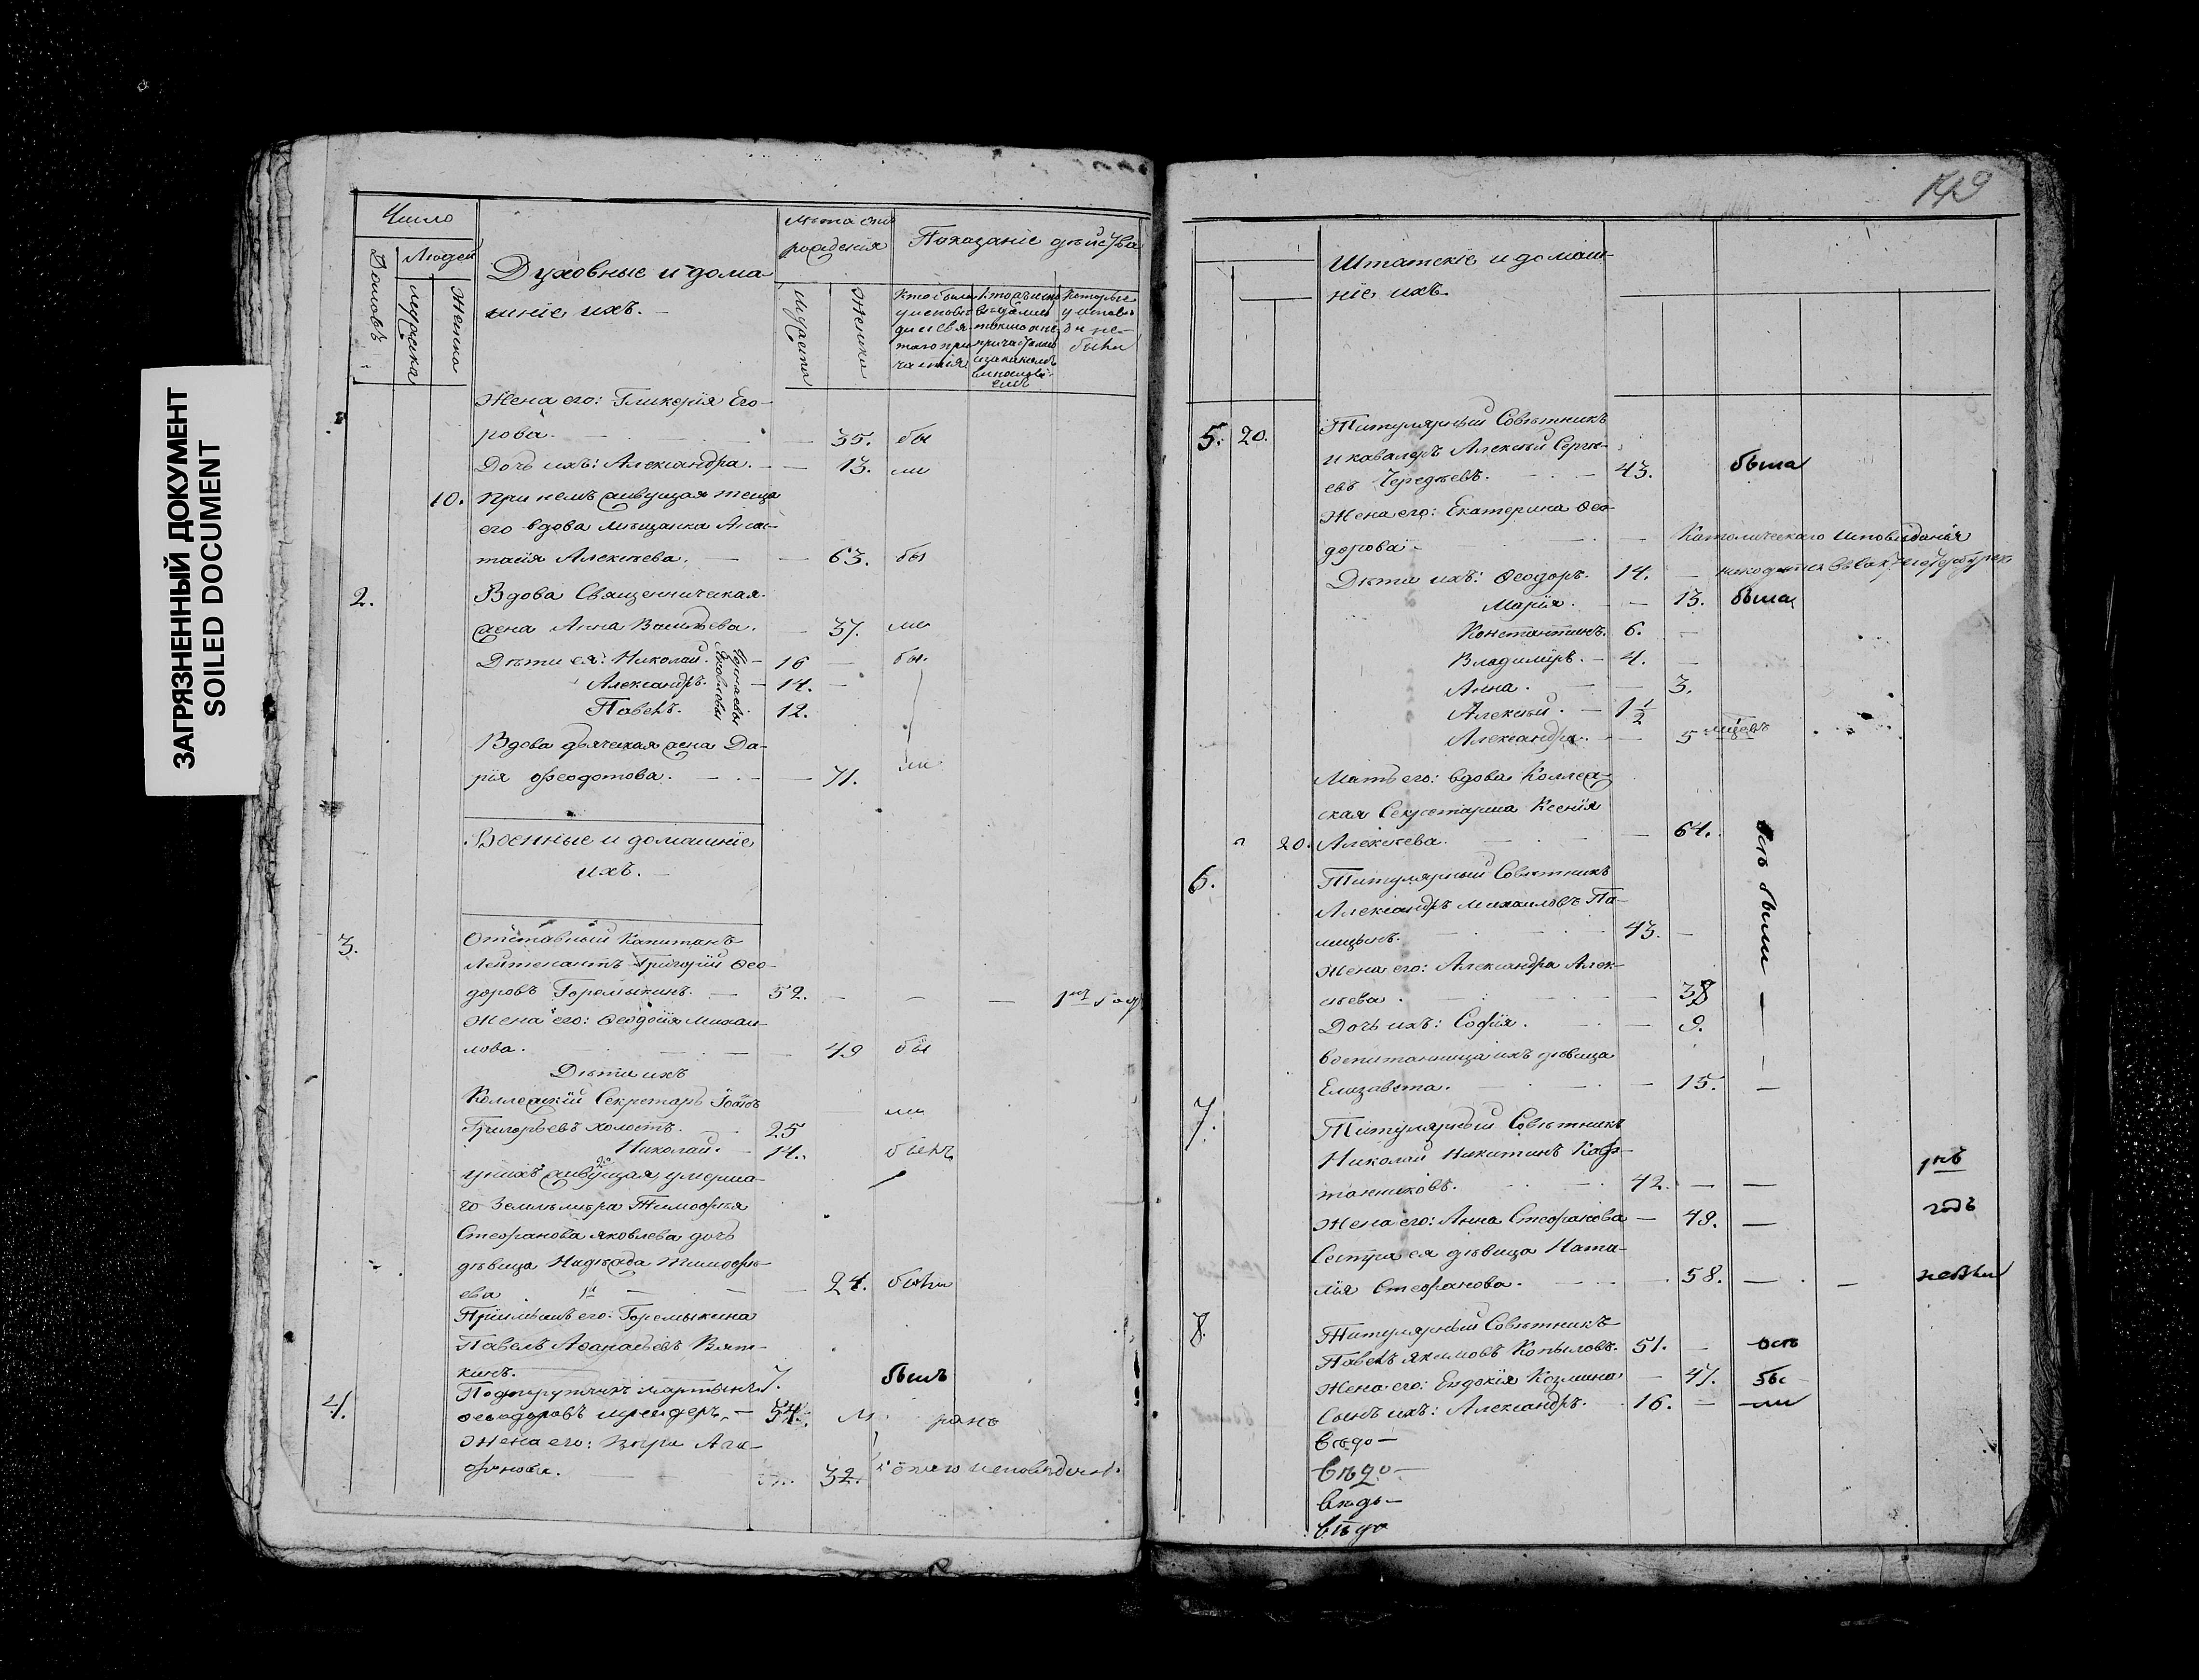 ЗАГРЯЗНЕННЫЙ ДОКУМЕНТ
SOILED DOCUMENT
Число
Домовъ
Людей
мужска
женска
Духовные и дома
шніе ихъ.
Лѣта отъ
рожденія
мужеска
женска
Показаніе дѣйства
Жена его: Гликерія Его-
рова. 35. бы
Дочь ихъ: Александра. 13. ли
10. При немъ живущая теща
его вдова мѣщанка Анас-
тасія Алексѣева. 63. бы
2. Вдова Священническая
жена Анна Васильева. 37. ли
Дѣти ея: Николай. 16 бы.
Александръ. 14.
Павелъ. 12.
Вдова дьяческая жена Да-
рія Феодотова. 71. ли
Военные и домашніе
ихъ.
3. Отставный Капитанъ
Лейтенантъ Григорій Ѳео-
доровъ Горемыкинъ. 52. 1й годъ
Жена его: Ѳеодосія Михаи-
лова. 49 бы
Дѣти ихъ
Коллежскій Секретарь Іоаннъ ли
Григорьевъ холостъ. 25
Николай. 14. былъ
у нихъ живущая умерша-
го Землемѣра Тимофея
Стефанова Яковлева дочь
дѣвица Надежда Тимофѣ-
ева 24. были
Пріимышъ его: Горемыкина
Павелъ Аѳанасьевъ Вят-
кинъ. 7. былъ
4. Мартынъ
Ѳеодоровъ 54.
Жена его: Ага-
фонова. 32. исповѣданія
149
Штатскіе и домаш-
ніе ихъ.
5. 20. Титулярный Совѣтникъ
и кавалеръ Алексѣй Сергѣ-
евъ Чередѣевъ. 43. была
Жена его: Екатерина Ѳео-
дорова Католическаго исповѣданія
Дѣти ихъ: Ѳеодоръ. 14. находится въ
Марія. 13. была
Константинъ. 6.
Владиміръ. 4.
Анна. 3.
Алексѣй. 1 1/2
Александра. 5 мѣсяцевъ
Мать его: вдова Коллеж-
ская Секретарша Ксенія
20. Алексѣева. 64.
всѣ были
6. Титулярный Совѣтникъ
Александръ Михаиловъ Па-
лицынъ. 43.
Жена его: Александра Алек-
сѣева. 38
Дочь ихъ: Софія. 9.
Воспитанница ихъ дѣвица
Елизавета. 15.
7. Титулярный Совѣтникъ
Николай Никитинъ Каф-
танниковъ. 42. 1й
Жена его: Анна Стефанова 49. годъ
Сестра ея дѣвица Ната-
лія Стефанова. 58. небыли
8. Титулярный Совѣтникъ
Павелъ Якимовъ Копыловъ. 51. всѣ
Жена его: Евдокія Козмина 47. бы
Сынъ ихъ: Александръ. 16. ли
Вѣдо
Вѣдо
Вѣдо
Вѣдо